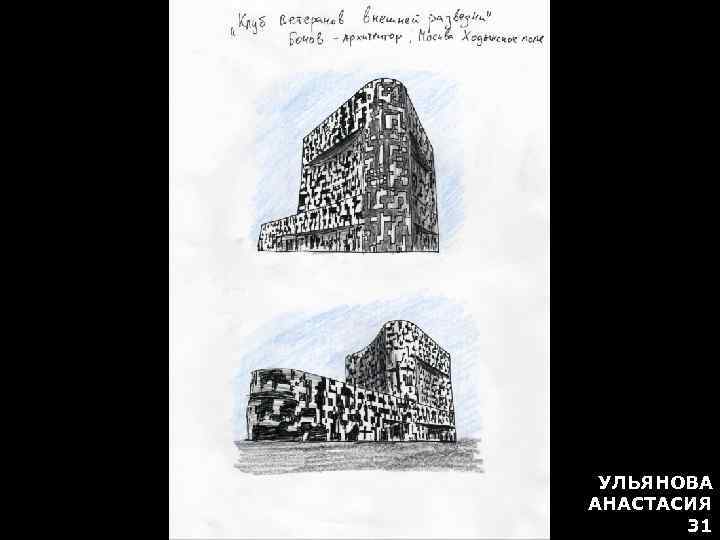 „Клуб ветеранов внешней разведки"
Боков - архитектор, Москва Ходынское поле
УЛЬЯНОВА
АНАСТАСИЯ
31